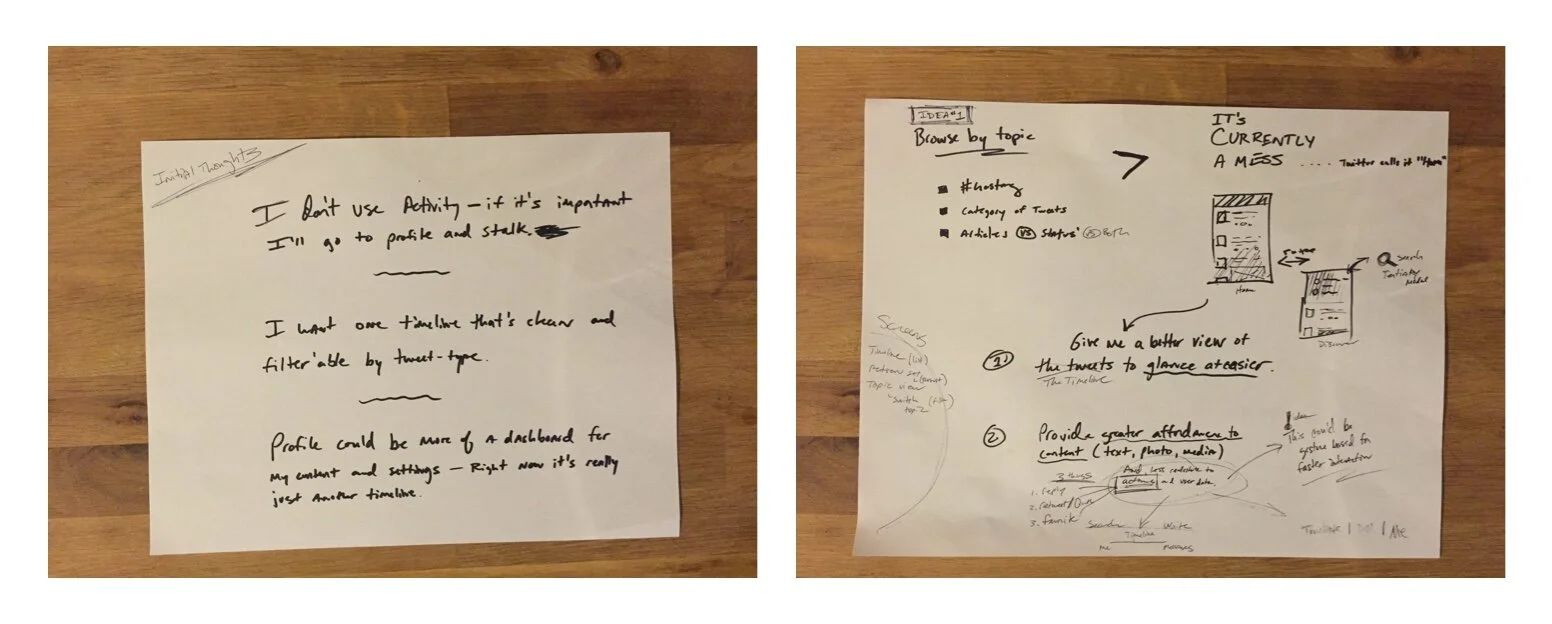 Initial Thoughts
I Don't use Activity — if it's important
I'll go to profile and stalk.
I want one timeline that's clean and
filter'able by tweet-type.
Profile could be more of a dashboard for
my content and settings — Right now it's really
just another timeline.
IDEA #1
Browse by topic
#hashtag
Category of Tweets
Articles vs Status' vs Both
>
IT'S
CURRENTLY
A MESS .... Twitter calls it "Home"
Home
Search
Discover
Give me a better view of
1 the tweets to glance at easier.
The Timeline
Screens
Timeline (list)
Topic view
switch
topic
2 Provide greater affordance to
content (text, photo, media)
And, less to
actions and user data.
3 things
1. reply
2. retweet/Quote
3.
idea
This could be
gesture based for
faster interaction
Search Write
Timeline
Me Messages
Timeline | | Me